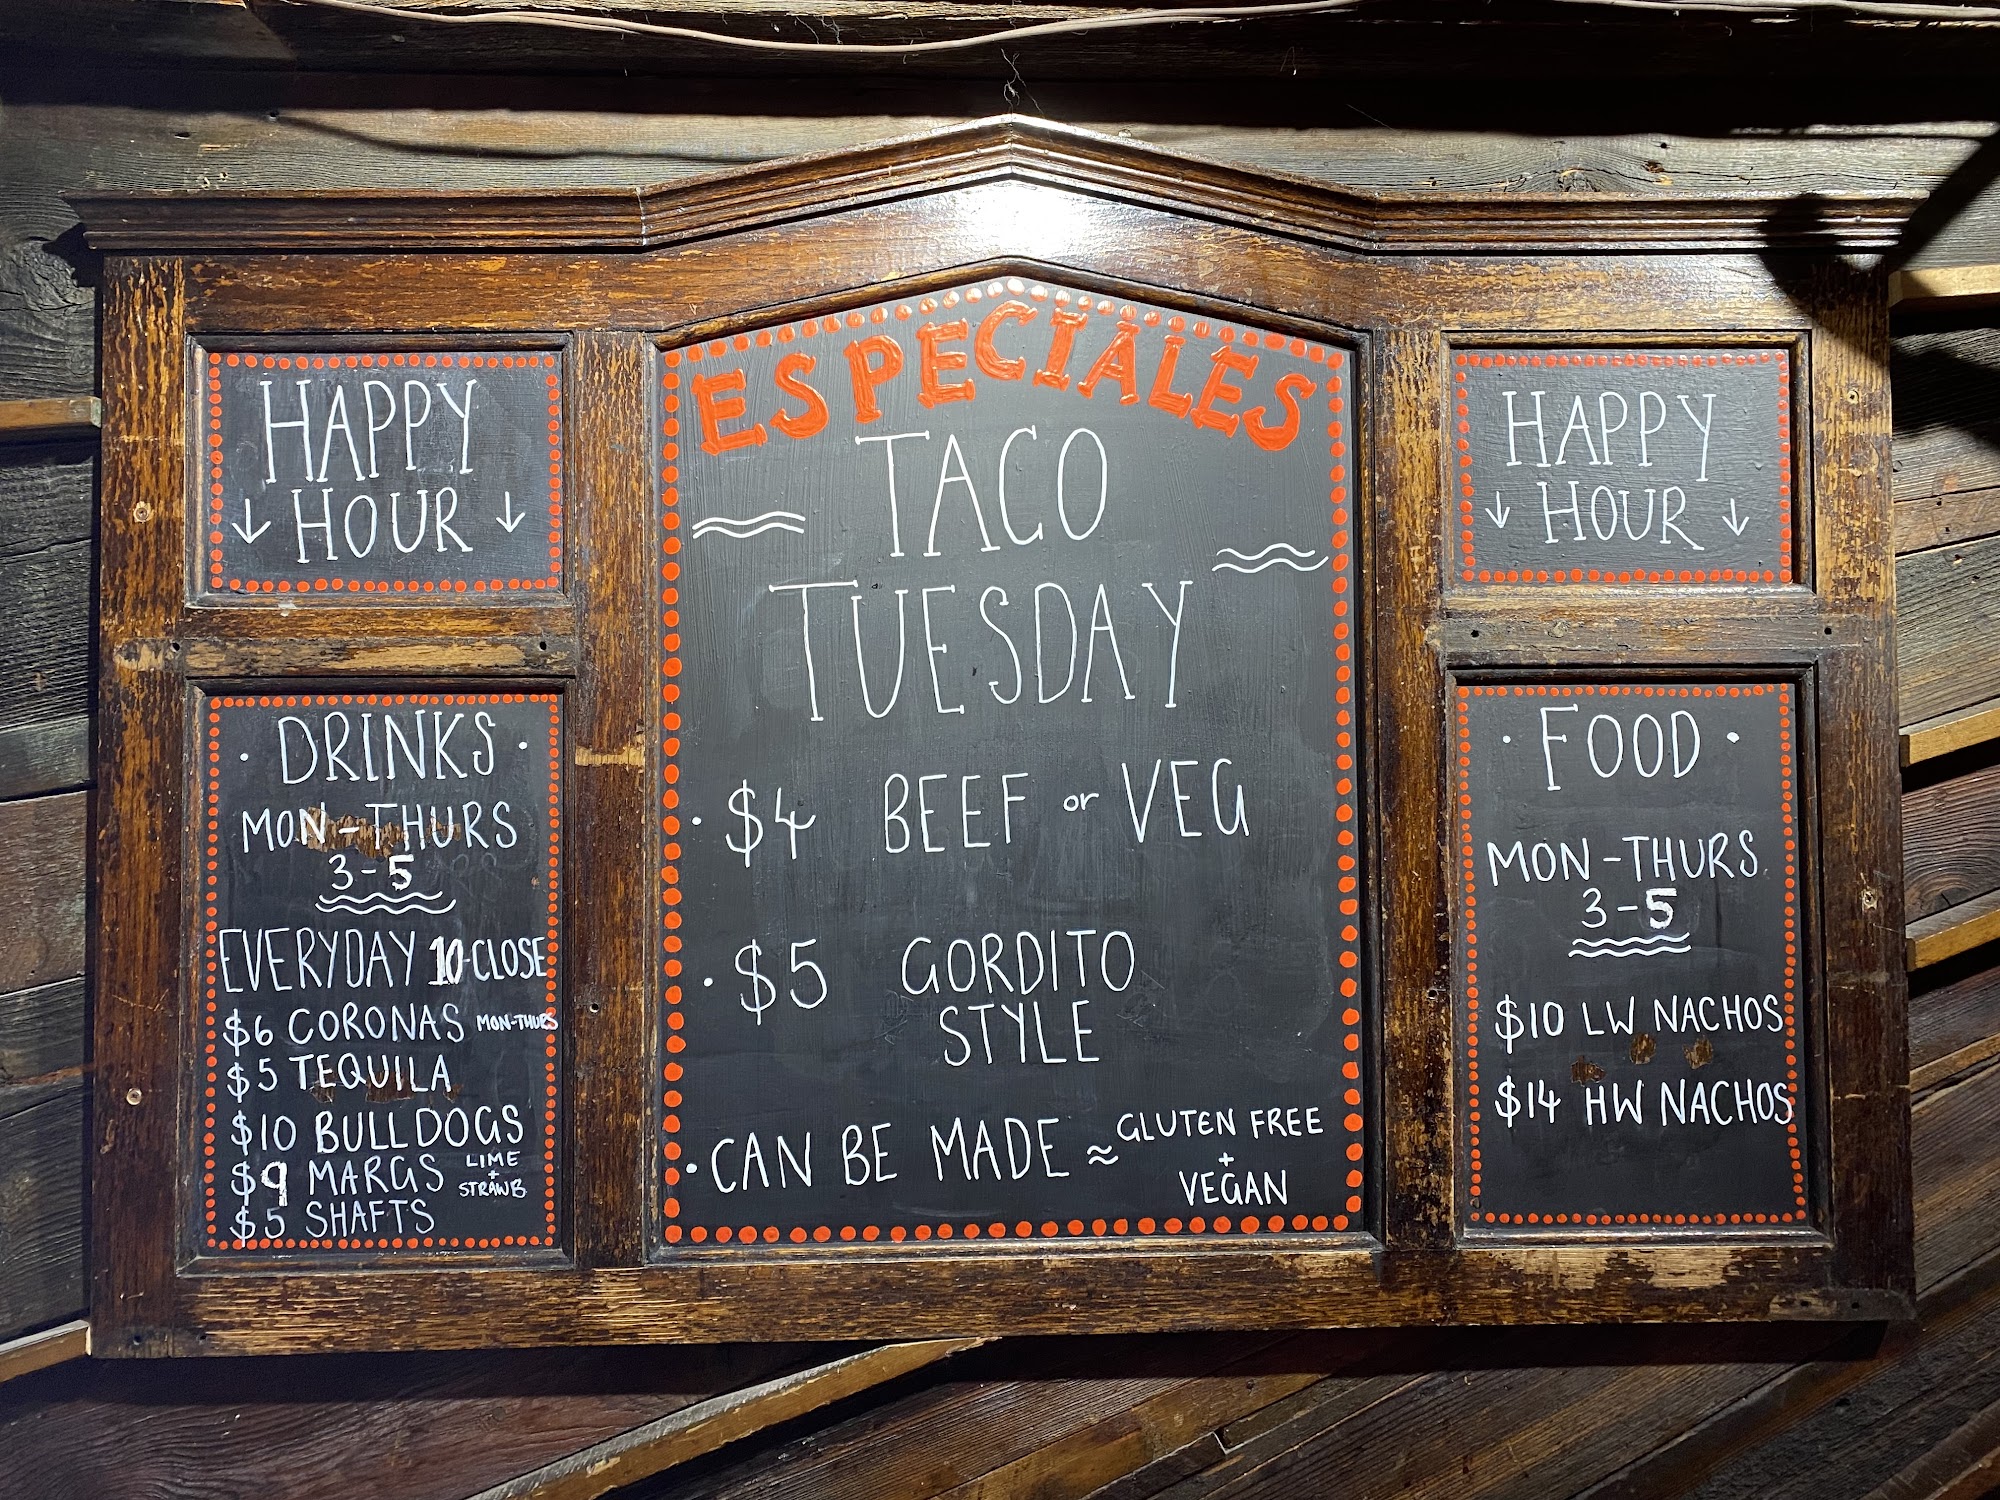 HAPPY
↓ HOUR ↓
· DRINKS ·
MON-THURS
3-5
EVERYDAY 10-CLOSE
$6 CORONAS MON-THURS
$5 TEQUILA
$10 BULLDOGS
$9 MARGS LIME + STRAWB
$5 SHAFTS
ESPECIALES
TACO
TUESDAY
· $4 BEEF or VEG
· $5 GORDITO
STYLE
· CAN BE MADE ≈ GLUTEN FREE
+
VEGAN
HAPPY
↓ HOUR ↓
· FOOD ·
MON-THURS
3-5
$10 LW NACHOS
$14 HW NACHOS